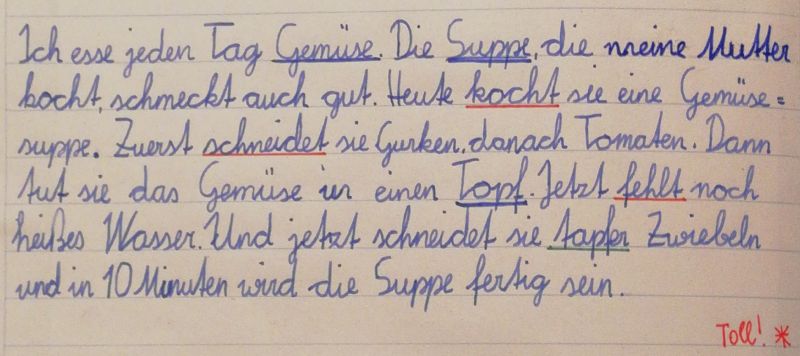 Ich esse jeden Tag Gemüse. Die Suppe, die meine Mutter
kocht, schmeckt auch gut. Heute kocht sie eine Gemüse=
suppe. Zuerst schneidet sie Gurken, danach Tomaten. Dann
tut sie das Gemüse in einen Topf. Jetzt fehlt noch
heißes Wasser. Und jetzt schneidet sie tapfer Zwiebeln
und in 10 Minuten wird die Suppe fertig sein.
Toll! *